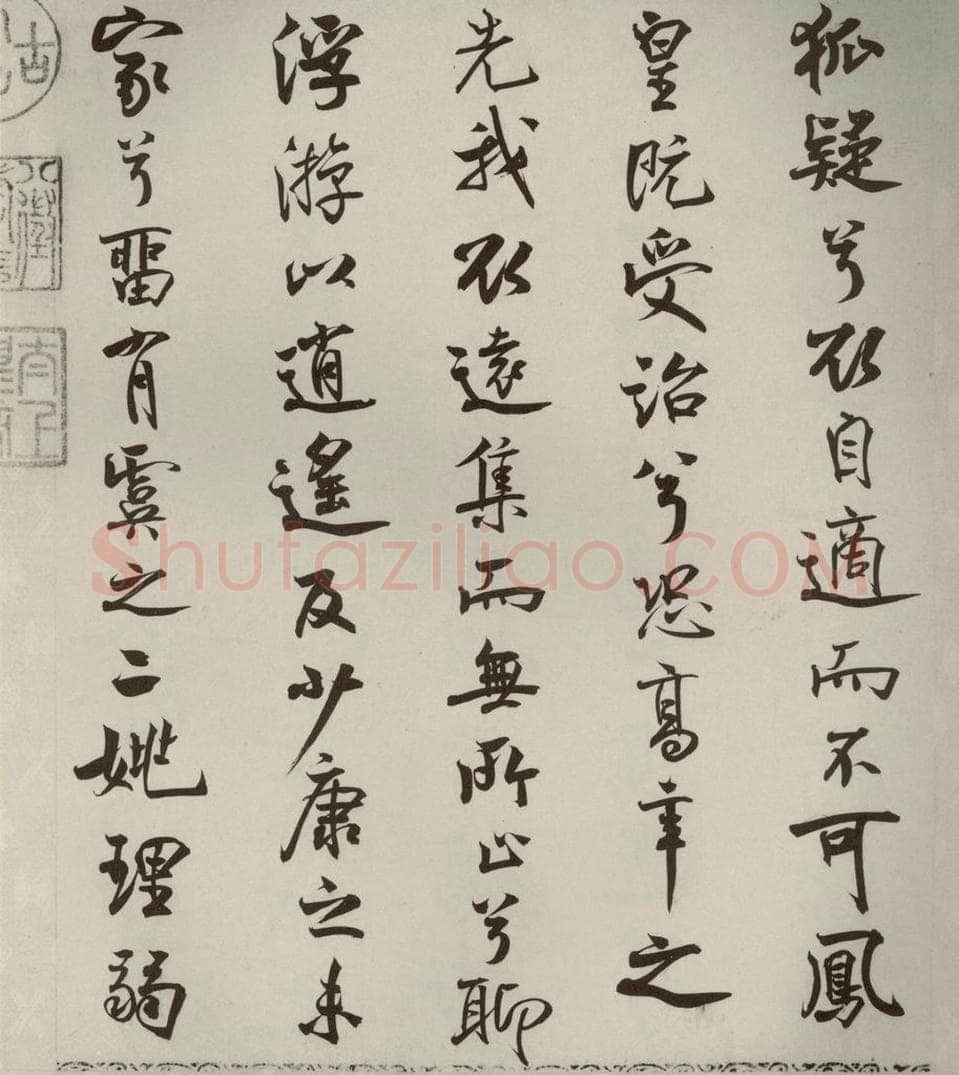 狐疑兮欲自適而不可鳳
皇既受詒兮恐高辛之
先我欲遠集而無所止兮聊
浮游以逍遙及少康之未
家兮留有虞之二姚理弱
Shufaziliao.COM